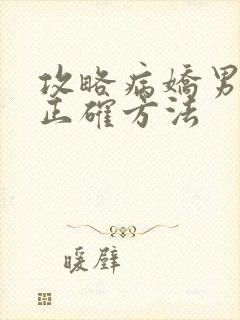 攻略病嬌男
正確方法
暖壁